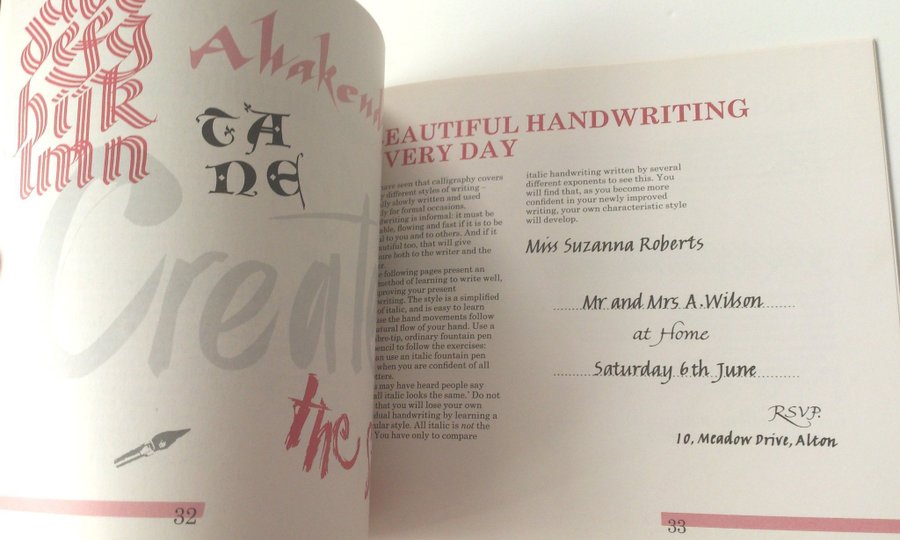 defg
hijk
lmn
Awakend
TA
NE
Creat
the
32
EAUTIFUL HANDWRITING
VERY DAY
have seen that calligraphy covers
different styles of writing –
slowly written and used
for formal occasions.
is informal: it must be
flowing and fast if it is to be
to you and to others. And if it
too, that will give
both to the writer and the
following pages present an
method of learning to write well,
your present
writing. The style is a simplified
of italic, and is easy to learn
the hand movements follow
flow of your hand. Use a
ordinary fountain pen
to follow the exercises:
use an italic fountain pen
when you are confident of all
may have heard people say
all italic looks the same.' Do not
that you will lose your own
handwriting by learning a
style. All italic is not the
You have only to compare
italic handwriting written by several
different exponents to see this. You
will find that, as you become more
confident in your newly improved
writing, your own characteristic style
will develop.
Miss Suzanna Roberts
Mr and Mrs A. Wilson
at Home
Saturday 6th June
RSVP.
10, Meadow Drive, Alton
33